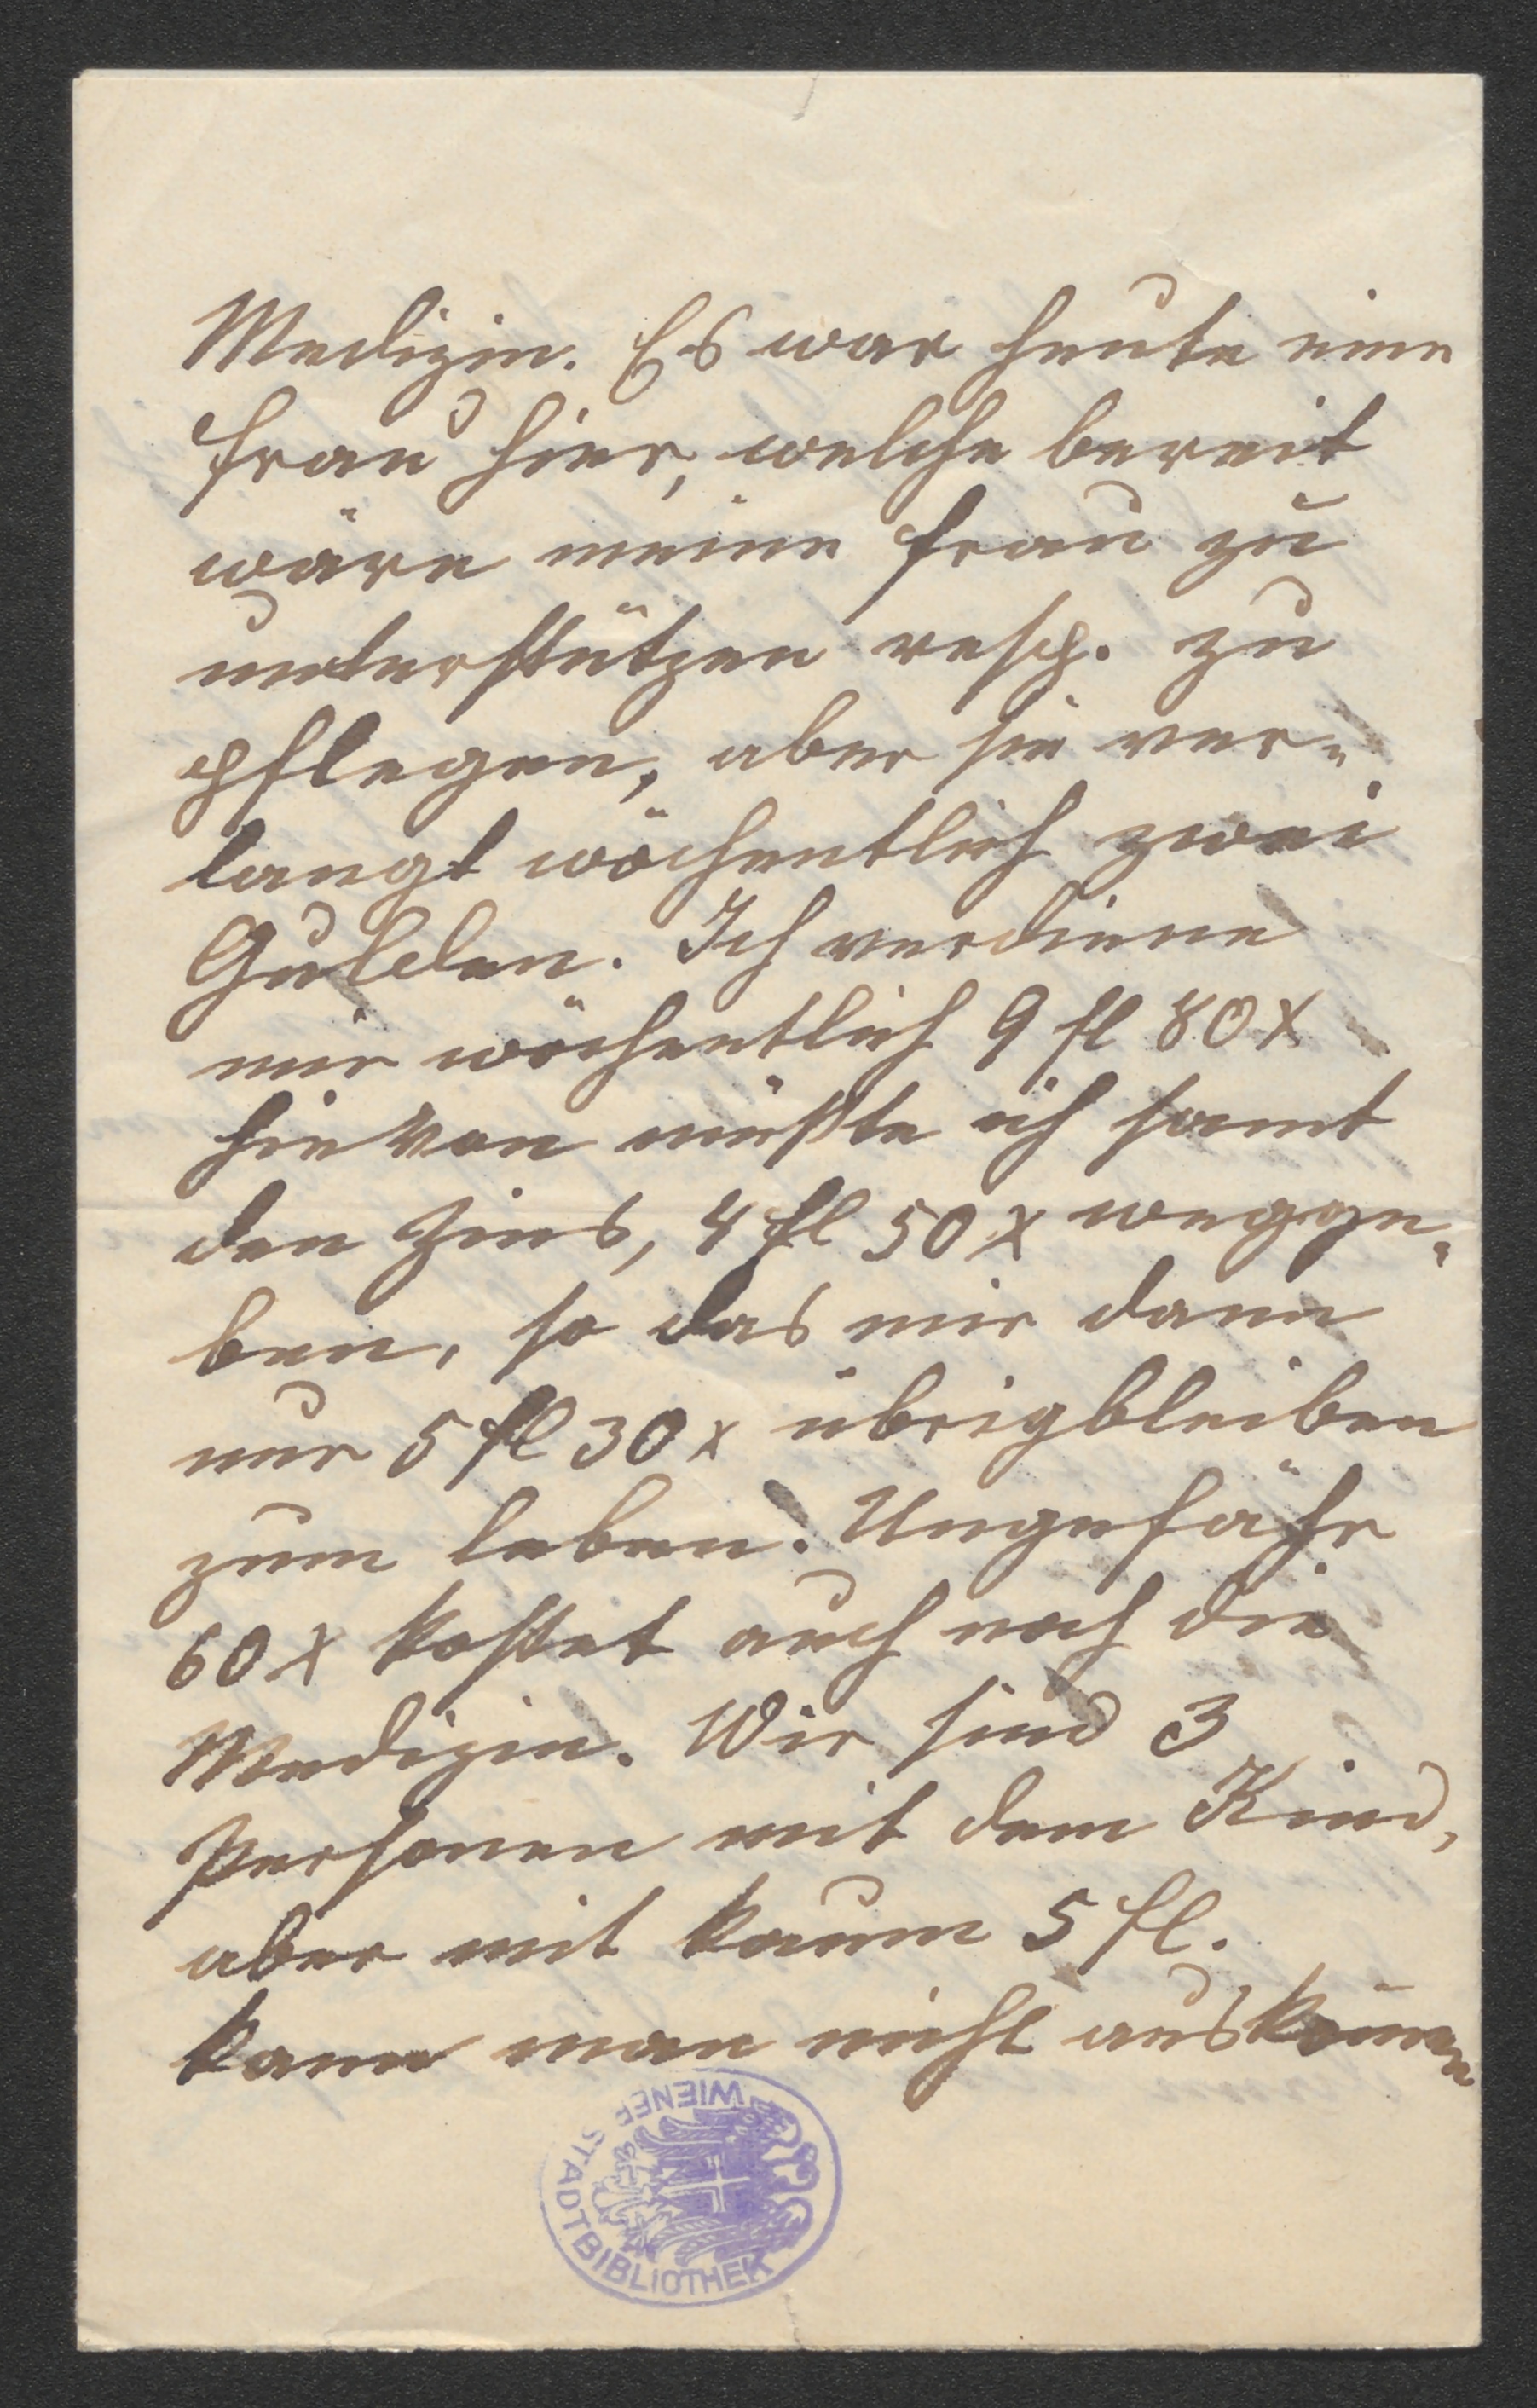 Medizin. Es war heute eine
Frau hier, welche bereit
wäre meine Frau zu
unterstützen resp. zu
pflegen, aber sie ver=
langt wöchentlich zwei
Gulden. Ich verdiene
mir wöchentlich 9 fl 80 x
hievon müßte ich samt
den Zins, 4 fl 50 x wegge=
ben, so das mir dann
nur 5 fl 30 x übrigbleiben
zum leben. Ungefähr
60 x kostet auch noch die
Medizin. Wir sind 3
Personen mit dem Kind,
aber mit kaum 5 fl.
kann man nicht auskommen
WIENER STADTBIBLIOTHEK